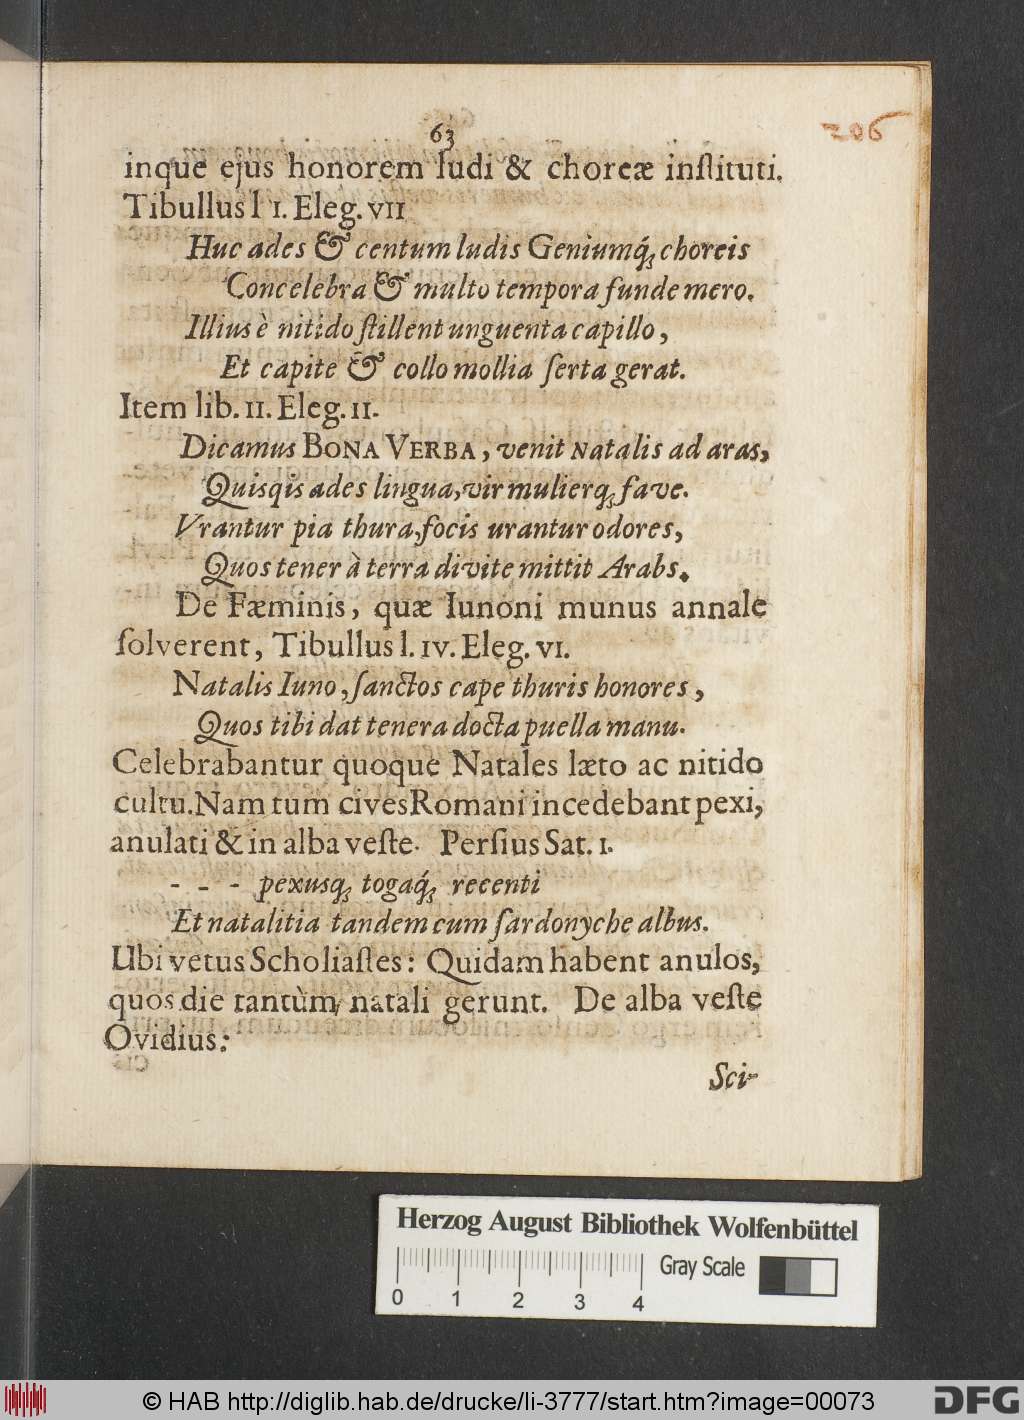 63
206
inque ejus honorem ludi & choreæ inſtituti.
Tibullus l I. Eleg. VII
Huc ades & centum ludis Geniumq́; choreis
Concelebra & multo tempora funde mero.
Illius è nitido ſtillent unguenta capillo,
Et capite & collo mollia ſerta gerat.
Item lib. II. Eleg. II.
Dicamus BONA VERBA, venit Natalis ad aras,
Quisqis ades lingua, vir mulierq; fave.
Vrantur pia thura, focis urantur odores,
Quos tener à terra divite mittit Arabs.
De Fæminis, quæ Iunoni munus annale
ſolverent, Tibullus l. IV. Eleg. VI.
Natalis Iuno, ſanctos cape thuris honores,
Quos tibi dat tenera docta puella manu.
Celebrabantur quoque Natales læto ac nitido
cultu. Nam tum cives Romani incedebant pexi,
anulati & in alba veſte. Perſius Sat. I.
- - - pexusq; togaq́; recenti
Et natalitia tandem cum ſardonyche albus.
Ubi vetus Scholiaſtes: Quidam habent anulos,
quos die tantùm natali gerunt. De alba veſte
Ovidius:
Sci-
Herzog August Bibliothek Wolfenbüttel
Gray Scale
0 1 2 3 4
© HAB http://diglib.hab.de/drucke/li-3777/start.htm?image=00073
DFG